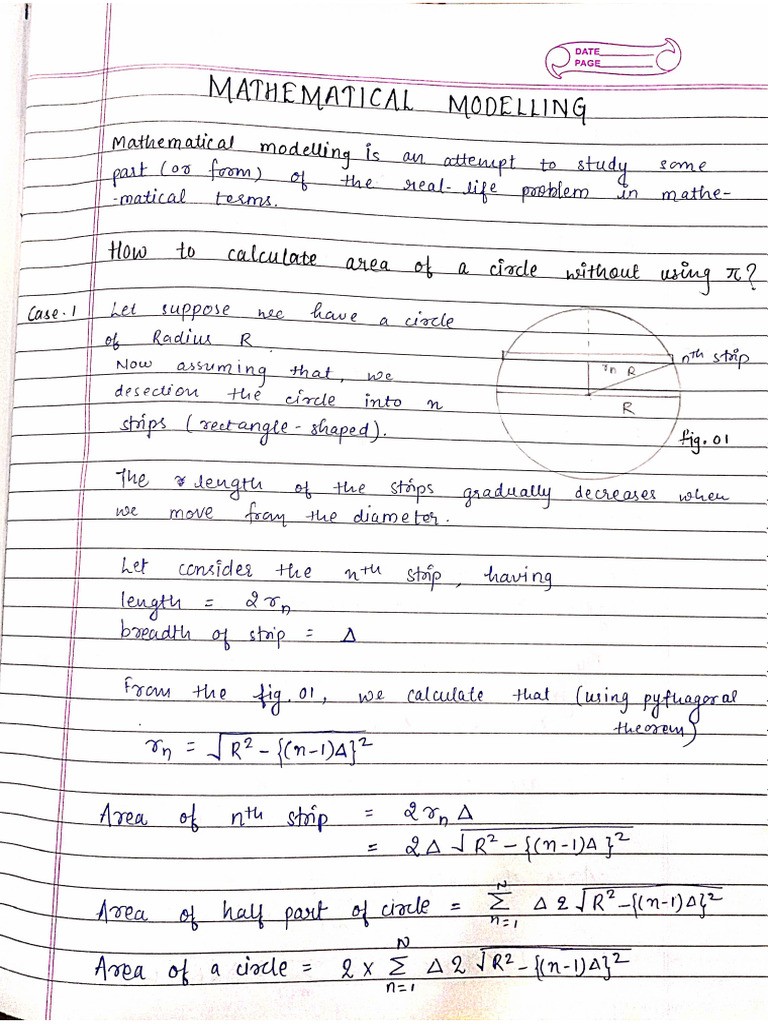 1
DATE
PAGE
MATHEMATICAL MODELLING
Mathematical modelling is an attempt to study some
part (or form) of the real-life problem in mathe-
-matical terms.
How to calculate area of a circle without using π?
Case.1 Let suppose we have a circle
of Radius R.
Now assuming that, we
desection the circle into n
strips (rectangle-shaped).
nth strip
rn R
R
fig.01
The length of the strips gradually decreases when
we move from the diameter.
Let consider the nth strip, having
length = 2rn
breadth of strip = Δ
From the fig.01, we calculate that (using pythagoral
theorem)
rn = √R² - {(n-1)Δ}²
Area of nth strip = 2rnΔ
= 2Δ√R² - {(n-1)Δ}²
Area of half part of circle = N Σ n=1 Δ2√R² - {(n-1)Δ}²
Area of a circle = 2 × N Σ n=1 Δ2√R² - {(n-1)Δ}²